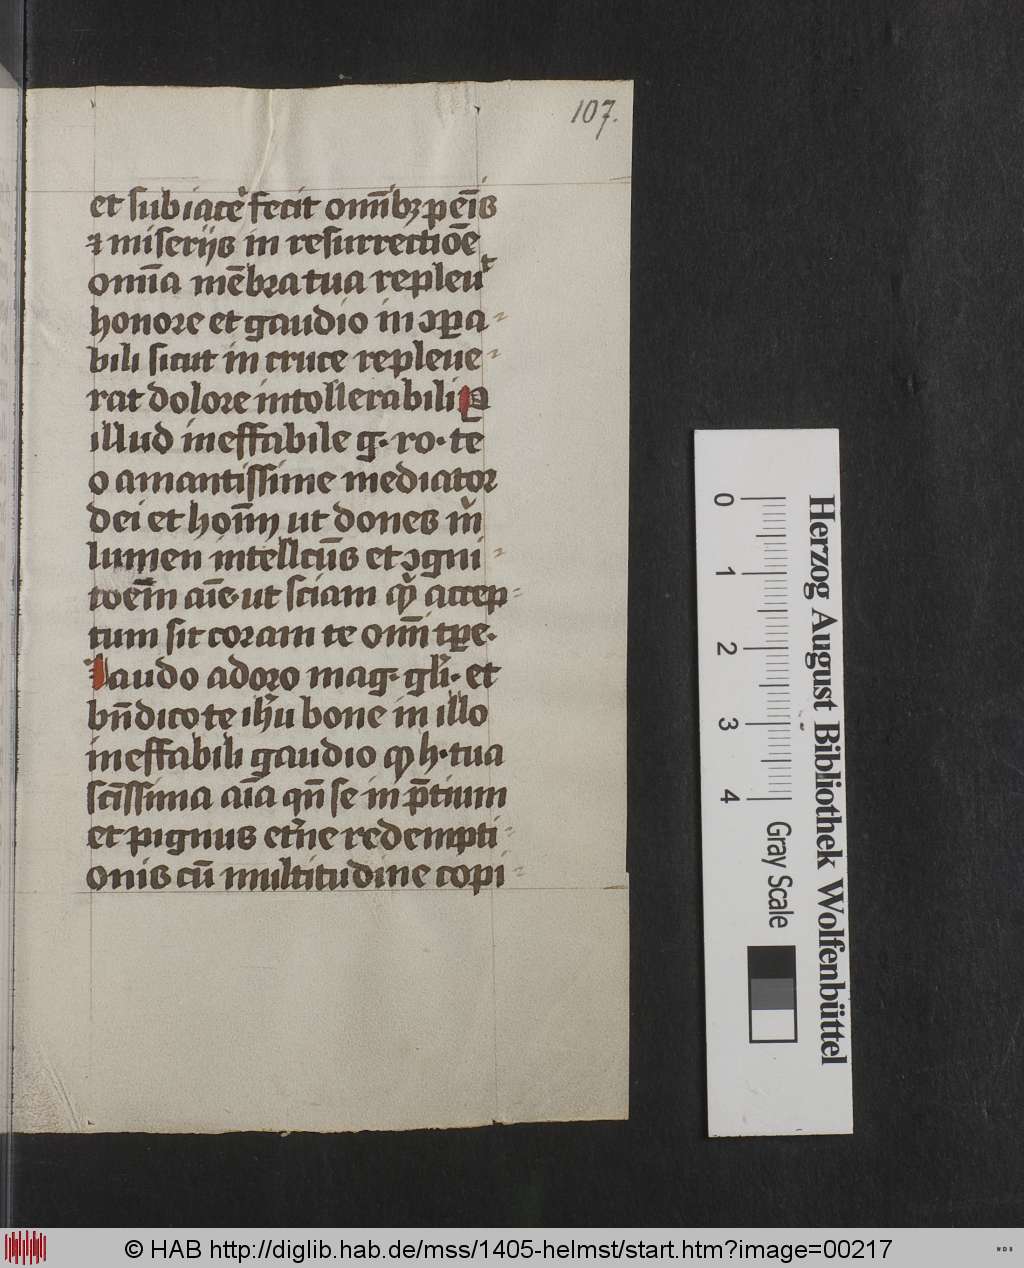 107.
et subiacẽ fecit om̃ibꝫ pẽis
⁊ miserijs in resurrectiõe
om̃ia mẽbra tua repleuᵗ
honore et gaudio in ɔꝑa-
bili sicut in cruce repleue-
rat dolore intollerabili P
illud ineffabile g. ro. te
o amantissime mediator
dei et hoĩm ut dones m̃
lumen intellcũs et ɔgni-
toẽm aĩe ut sciam qͥ accep-
tum sit coram te omĩ tꝑe.
Laudo adoro mag. gli. et
bñdico te ihũ bone in illo
ineffabili gaudio ꝙ h. tua
scĩssima aĩa qñ se in p̃tium
et pignus etñe redempti-
onis cũ multitudine copi-
0 1 2 3 4
Gray Scale
Herzog August Bibliothek Wolfenbüttel
© HAB http://diglib.hab.de/mss/1405-helmst/start.htm?image=00217